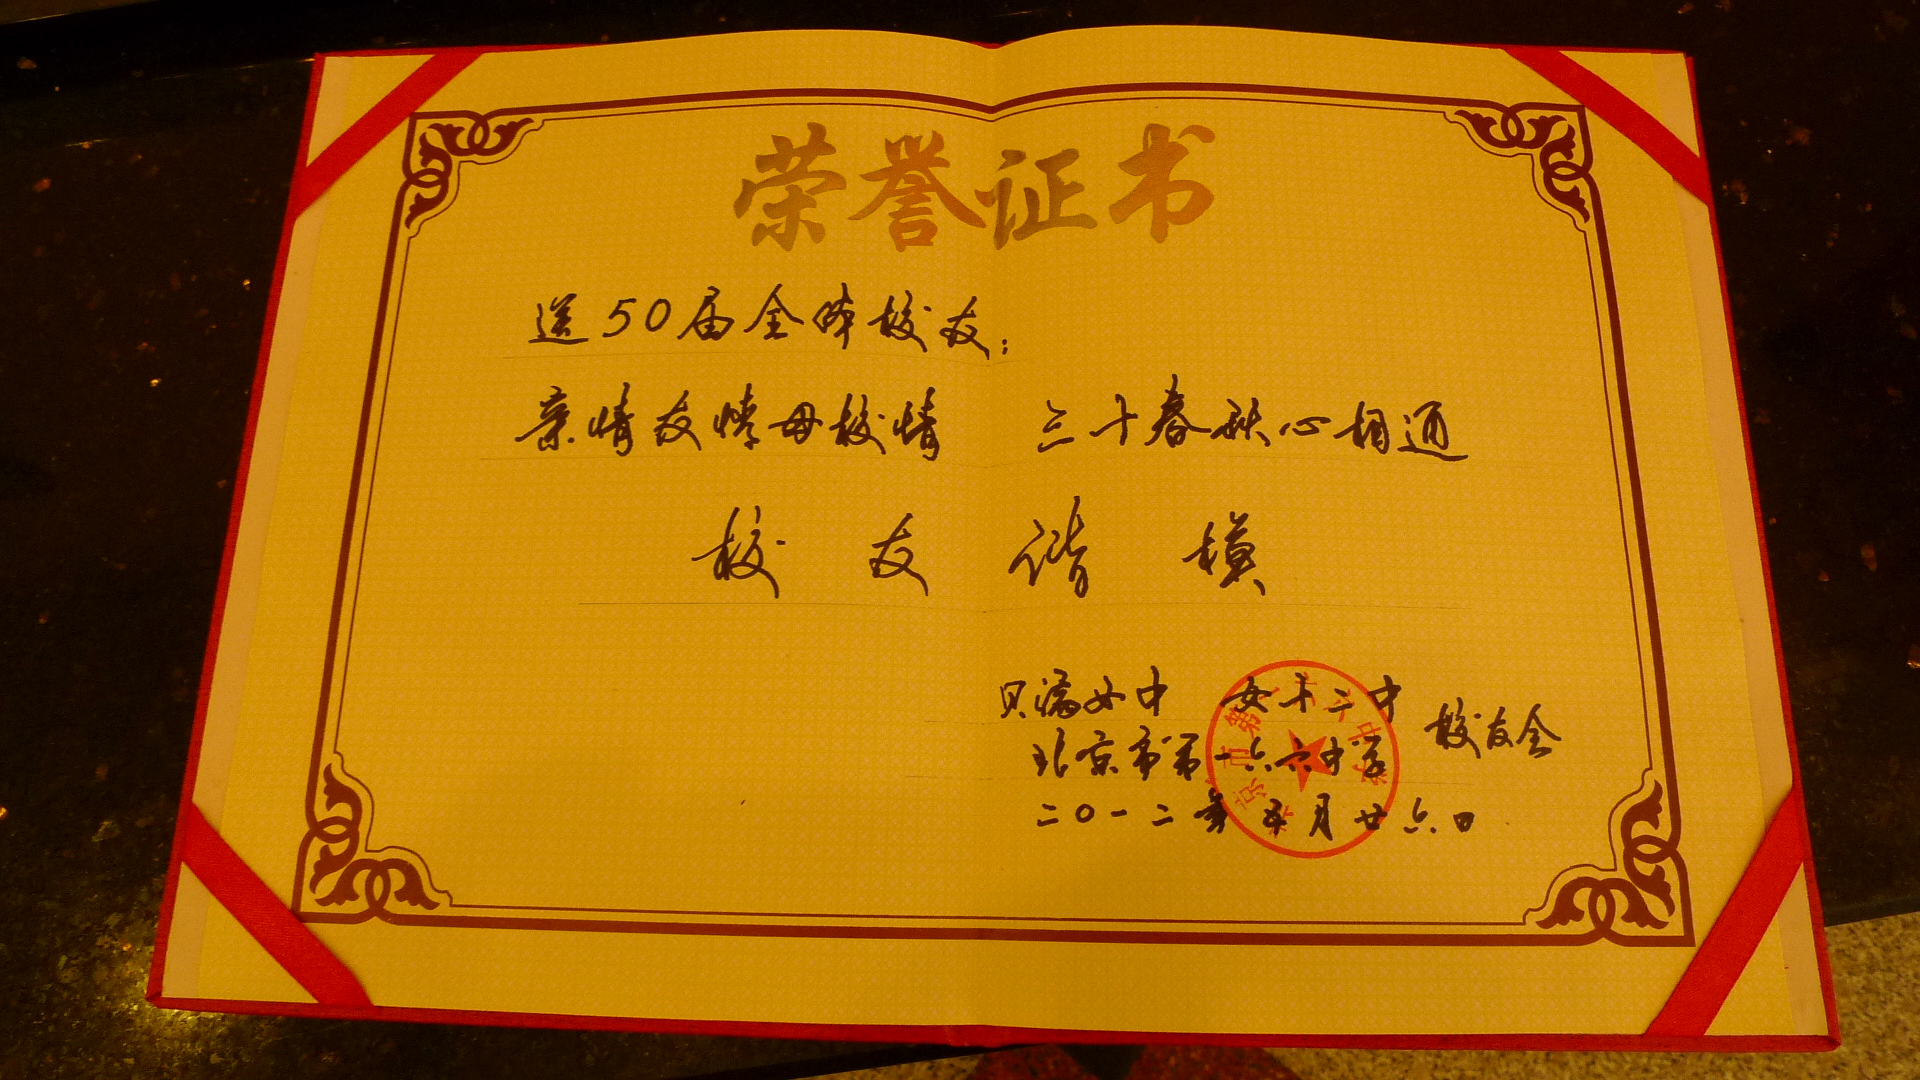 荣誉证书
送50届全体校友：
亲情友情母校情 三十春秋心相通
校友谐模
贝满女中 女十二中
北京市第一六六中学 校友会
二〇一二年五月廿六日